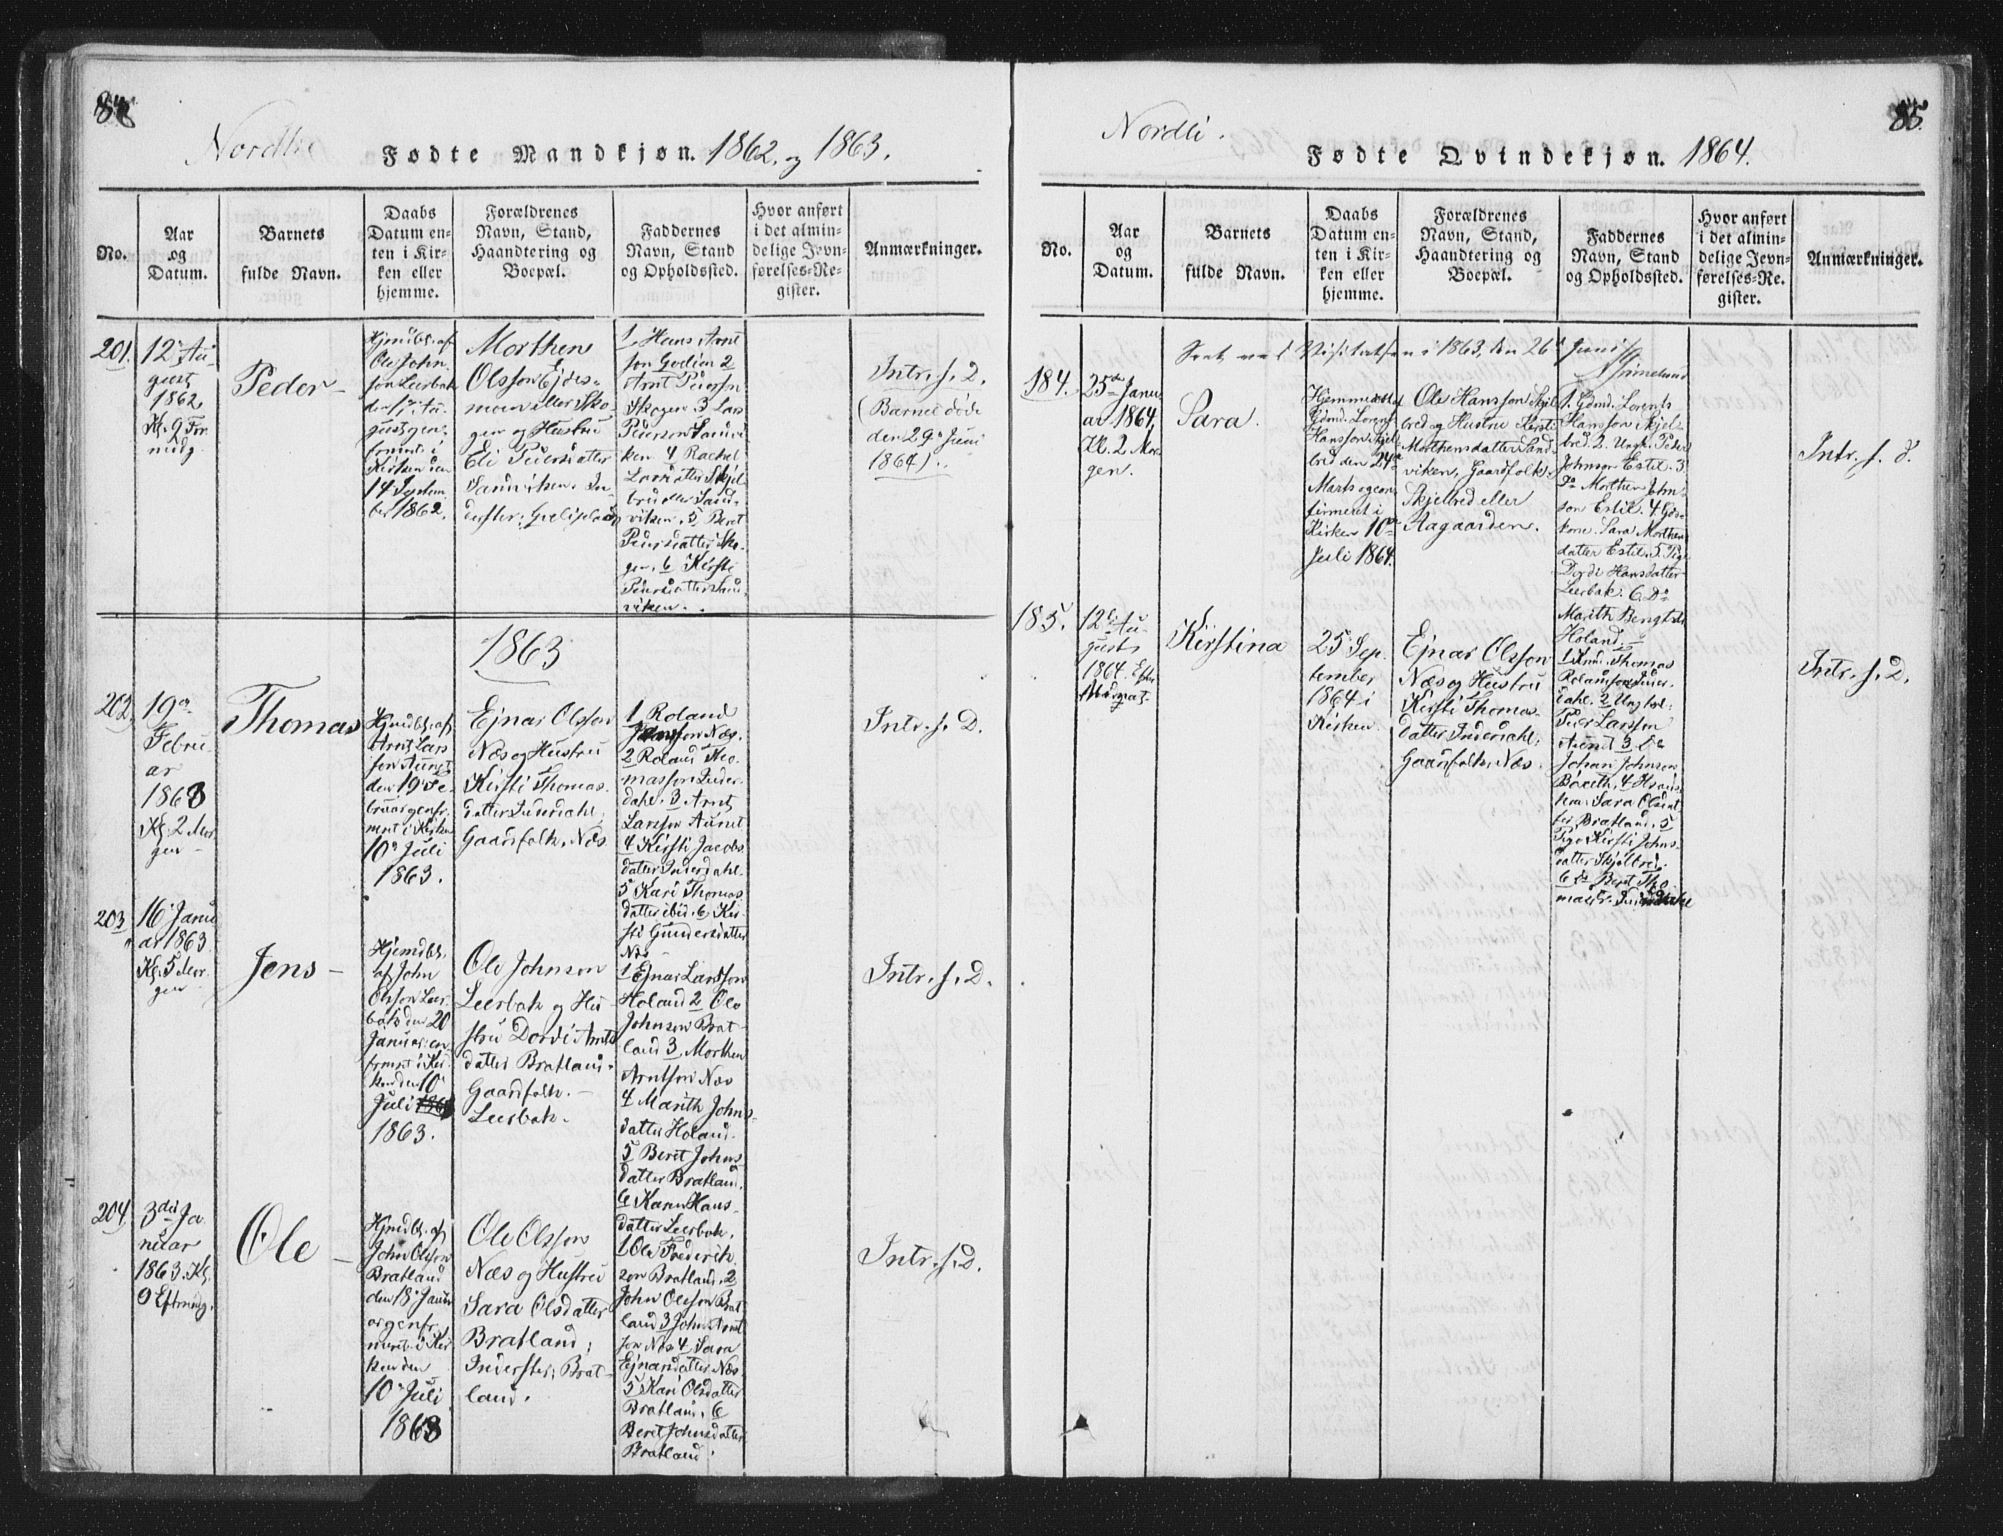 84
Nordli
Fødte Mandkjøn. 1862. og 1863.
No.
Aar
og
Datum.
Barnets
fulde Navn.
Daabs
Datum en-
ten i Kir-
ken eller
hjemme.
Forældrenes
Navn, Stand,
Haandtering og
Boepæl.
Faddernes
Navn, Stand
og Opholdssted.
Hvor anført
i det almin-
delige Jevn-
førelses-Re-
gister.
Anmærkninger.
201.
12 Au-
gust
1862
Kl. 9 For-
midg.
Peder
Hjmdbt. af
Ole John
son Leerbak
den 17 Au-
gust
i
Kirken den
14 Septem
ber 1862.
Morthen
Olsson Ejdes-
moen eller Sko-
gen og Hustru
Eli Pedersdatter
Sandviken. In-
derster.
1 Hans Arnt
son 2
Arnt Pederson
Skogen 3 Lars
Pederson Sandvi
ken 4 Rachel
Larsdatter Skjel
bred eller Sand-
viken. 5 Beret
Pedersdatter Sko-
gen. 6 Kirsti
Pedersdatter Sand
viken.
Intr. s. D.
(Barnet døde
den 29 Juni
1864).
1863
202.
19
Febru-
ar
1863
Kl. 2 Mor
gen
Thomas
Hjmdbt. af
Arnt Lars
son Aunet
den 19 Fe-
bruar
ment i Kirken
10 Juli
1863.
Ejnar Olsson
Næs og Hustru
Kirsti Thomas-
datter Inderdahl,
Gaardfolk, Næs.
1 Roland
Næs.
2 Roland Tho-
masson Inder-
dahl. 3 Arnt
Larsson Aunet
4 Kirsti Jacobs
datter Inderdahl.
5 Kari Thomas
datter ibid. 6 Kir-
sti Gundersdatter
Næs
Intr. s. D.
203
16 Janu
ar 1863
Kl. 5 Mor-
gen
Jens
Hjemdbt.
af John
Olsson Leer
bak den 20
Januar con
firmert i Kir
ken den 10
Juli
1863.
Ole Johnson
Leerbak og Hu-
stru Dordi Arnts
datter Bratland.
Gaardfolk.
Leerbak.
1 Ejnar Larsson
Holand 2 Ole
Johnson Brat-
land 3. Morthen
Arntson Næs
4 Marith Johns-
datter Holand.
5 Beret Johns
datter Bratland,
6 Karen Hans-
datter Leerbak.
Intr. s. D.
204.
3die Ja-
nuar
1863. Kl.
9 Eftmidg.
Ole
Hjmdbt. af
John Olsson
Bratland
den 18 Janu
ar
ment i Kir
ken den
10 Juli
1863
Ole Olsson
Næs og Hustru
Sara Olsdatter
Bratland;
Inderster; Brat-
land.
1 Ole Frederik
son Bratland. 2
John Olsson Brat
land 3 John Arnt
son Næs 4 Sara
Ejnarsdatter Næs
5 Kari Olsdatter
Bratland. 6
Beret Johnsdatter
Bratland.
Intr. s. D.
85.
Nordli.
Fødte Qvindekjøn. 1864.
No.
Aar
og
Datum.
Barnets
fulde Navn.
Daabs
Datum en-
ten i Kir-
ken eller
hjemme.
Forældrenes
Navn, Stand,
Haandtering og
Boepæl.
Faddernes
Navn, Stand
og Opholdssted.
Hvor anført
i det almin-
delige Jevn-
førelses-Re-
gister.
Anmærkninger.
Seet ved Visitatsen i 1863, den 26 Juni
184.
25de Janu-
ar 1864,
Kl. 2 Mor
gen.
Sara.
Hjemmedbt
Gdmd. Lorents
Hansson Skjel
bred den 24de
Marts og con
firmeret i
Kirken 10de
Juli 1864.
Ole Hansson Skjel
bred og Hustru Kirsti
Morthensdatter Sand
viken, Gaardfolk.
Skjelbred eller
Aagaarden.
1. Gdmd. Lorents
Hansson i Skjel-
bred. 2. Ungk. Peder
Johnson Estil. 3.
Do Morthen John-
son Estil. 4 Gdm-
kone. Sara Morthen
datter Estil. 5. Pige
Dordi Hansdatter
Leerbak. 6. Do
Marith Bengts
Holand.
Intr. s. D.
185.
12te Au-
gust
1864. Efter
Midnat.
Kirstina
25 Sep-
tember
1864 i
Kirken.
Ejnar Olsson
Næs og Hustru
Kirsti Thomas-
datter Inderdahl,
Gaardfolk, Næs.
1 Thomas
Rolandson Inder-
dahl. 2 Ungkel.
Peder Larsson
Aunet 3 Do
Johan Johnson
4
Sara Olsdat
ter Bratland, 5
Pige Kirsti Johns-
datter Skjelbred.
6 Do Beret Tho
masd. Inderdahl
Intr. s. D.